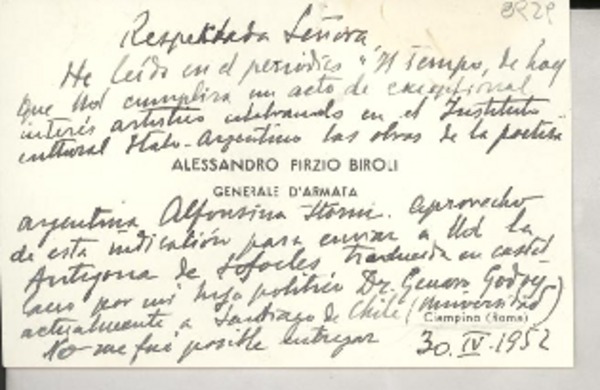 8929
Respetada Señora
He leído en el periodico "Il Tempo, de hoy
que Ud cumplira un acto de exceptional
interés artistico celebrando en el Instituto
cultural Italo-Argentino las obras de la poetisa
ALESSANDRO PIRZIO BIROLI
GENERALE D'ARMATA
argentina Alfonsina Storni. aprovecho
de esta indicación para enviar a Ud la
Antigona de Sofocles traducida en castel
lano por mi hijo politico Dr. Genaro Godoy
actualmente a Santiago de Chile (Universidad)
Ciampino (Roma)
No me fué posible entregar 30. IV. 1952